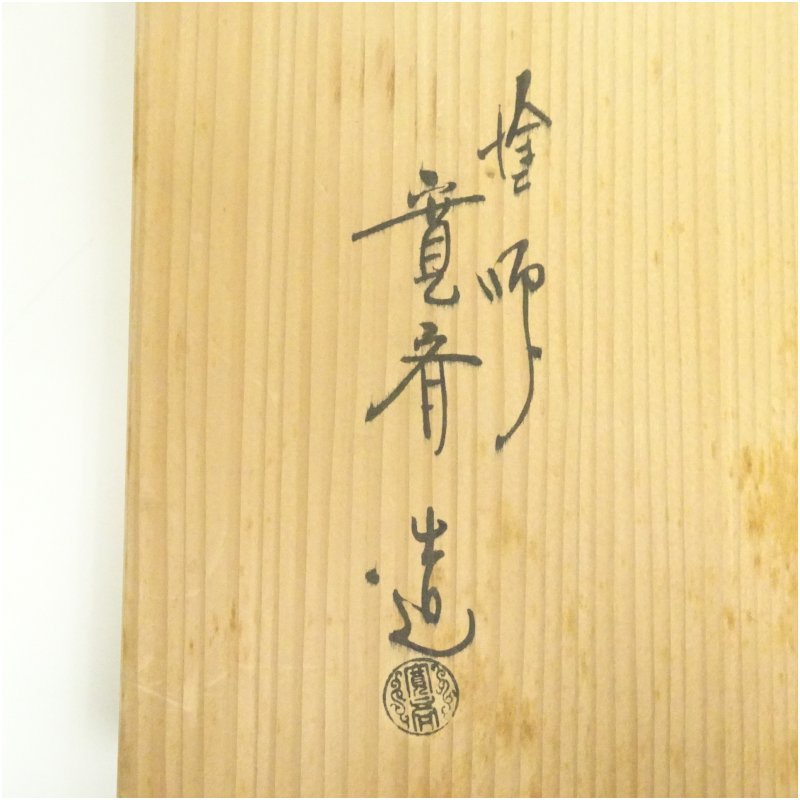 塗師
寛斎造
寛斎